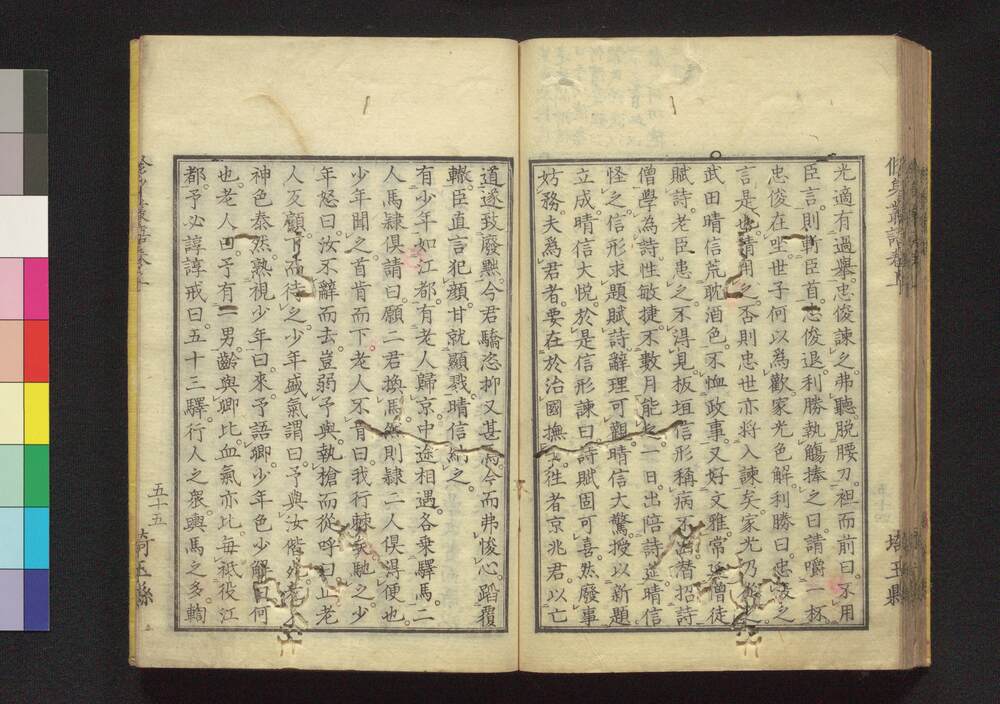 光適有過擧忠俊諫之弗聽脫腰刀袒而前曰不用
臣言則斬臣首忠俊退利勝執觴捧之曰請嚼一杯
忠俊在坐世子何以為歡家光色解利勝曰忠俊之
言是也請用之否則忠世亦將入諫矣家光乃
武田晴信荒耽酒色不恤政事又好文雅常延僧徒
賦詩老臣患之不得見板垣信形稱病不出潛招詩
僧學為詩性敏捷不數月能之一日出陪詩筵晴信
怪之信形求題賦詩辭理可觀晴信大驚授以新題
立成晴信大悅於是信形諫曰詩賦固可喜然廢事
妨務夫為君者要在於治國撫士往者京兆君以亡
道遂致廢黜今君驕恣抑又甚焉今而弗悛心蹈覆
轍臣直言犯顏甘就顯戮晴信納之
有少年如江都有老人歸京中途相遇各乘驛馬二
人馬隸俱請曰願二君換馬然則隸二人俱得便也
少年聞之首肯而下老人不肯曰我行棘矣馳之少
年怒曰汝不辭而去豈弱予與執槍而從呼曰止老
人反顧下而待之少年盛氣謂曰予與汝偕死老
神色泰然熟視少年曰來予語卿少年色少解曰何
也老人曰予有一男齡與卿比血氣亦比每祗役江
都予必諄諄戒曰五十三驛行人之衆輿馬之多輷
五十五